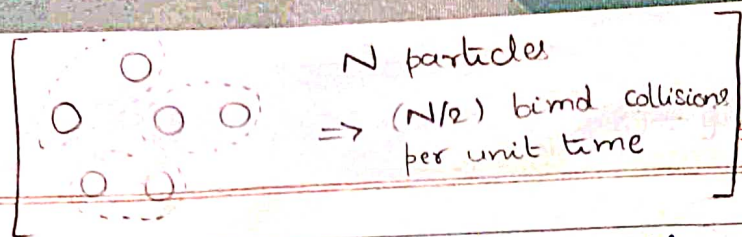 N particles
=> (N/2) bimd collisions
per unit time